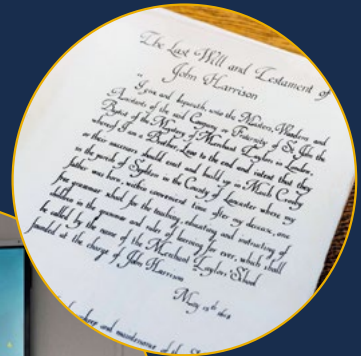 The Last Will and Testament of
John Harrison
"I give and bequeath, unto the Masters, Wardens and
Assistants of the said Company or Fraternity of St. John the
Baptist of the Mystery of Merchant Taylors in London,
whereof I am a Brother, Law to the end and intent that they
or their successors should erect and build up in Much Crosby
in the parish of Sephton in the County of Lancaster where my
father was born, within convenient time after my decease, one
free grammar school for the teaching, educating and instructing of
children in the grammar and rules of learning for ever, which shall
be called by the name of the Merchant Taylors' School
founded at the charge of John Harrison
May 15th 1618
and maintenance of the